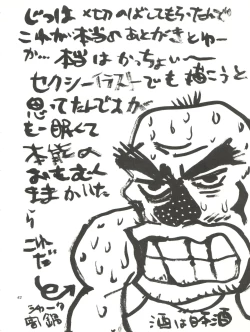 じつは〆切のばしてもらったんで
これが本当のあとがきとゆー
か…本当はかっちょいー
セクシーイラストでも描こうと
思ってたんですが
もー眠くて
本能の
おもむく
ままかいた
ら
これ
だ
闇鍋
酒は日本酒